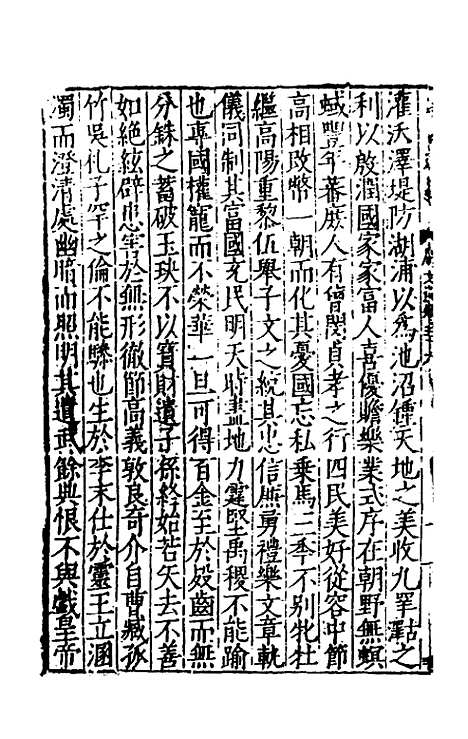 灌沃澤堤防湖浦以為池沼鍾天地之美收九罩澤之
利以殷潤國家家富人喜優贍樂業式序在朝野無螟
蜮豐年蕃庶人有曾閔貞孝之行四民美好從容中節
高相改幣一朝而化其憂國忘私乗馬三季不別牝牡
繼高陽重黎伍舉子文之統其忠信廉勇禮樂文章軌
儀同制其富國充民明天時盡地力霊堅禹稷不能踰
也專國權寵而不榮華一旦可得百金至於殁齒而無
分銖之蓄破玉玦不以寳財遺子孫終始若矢去不善
如絶絃辟患害於無形徹節高義敦良竒介自曹臧孤
竹吳札子罕之倫不能驂也生於季末仕於靈王立溷
濁而澄清處幽暗而照明其遺武餘典恨不與戯皇帝